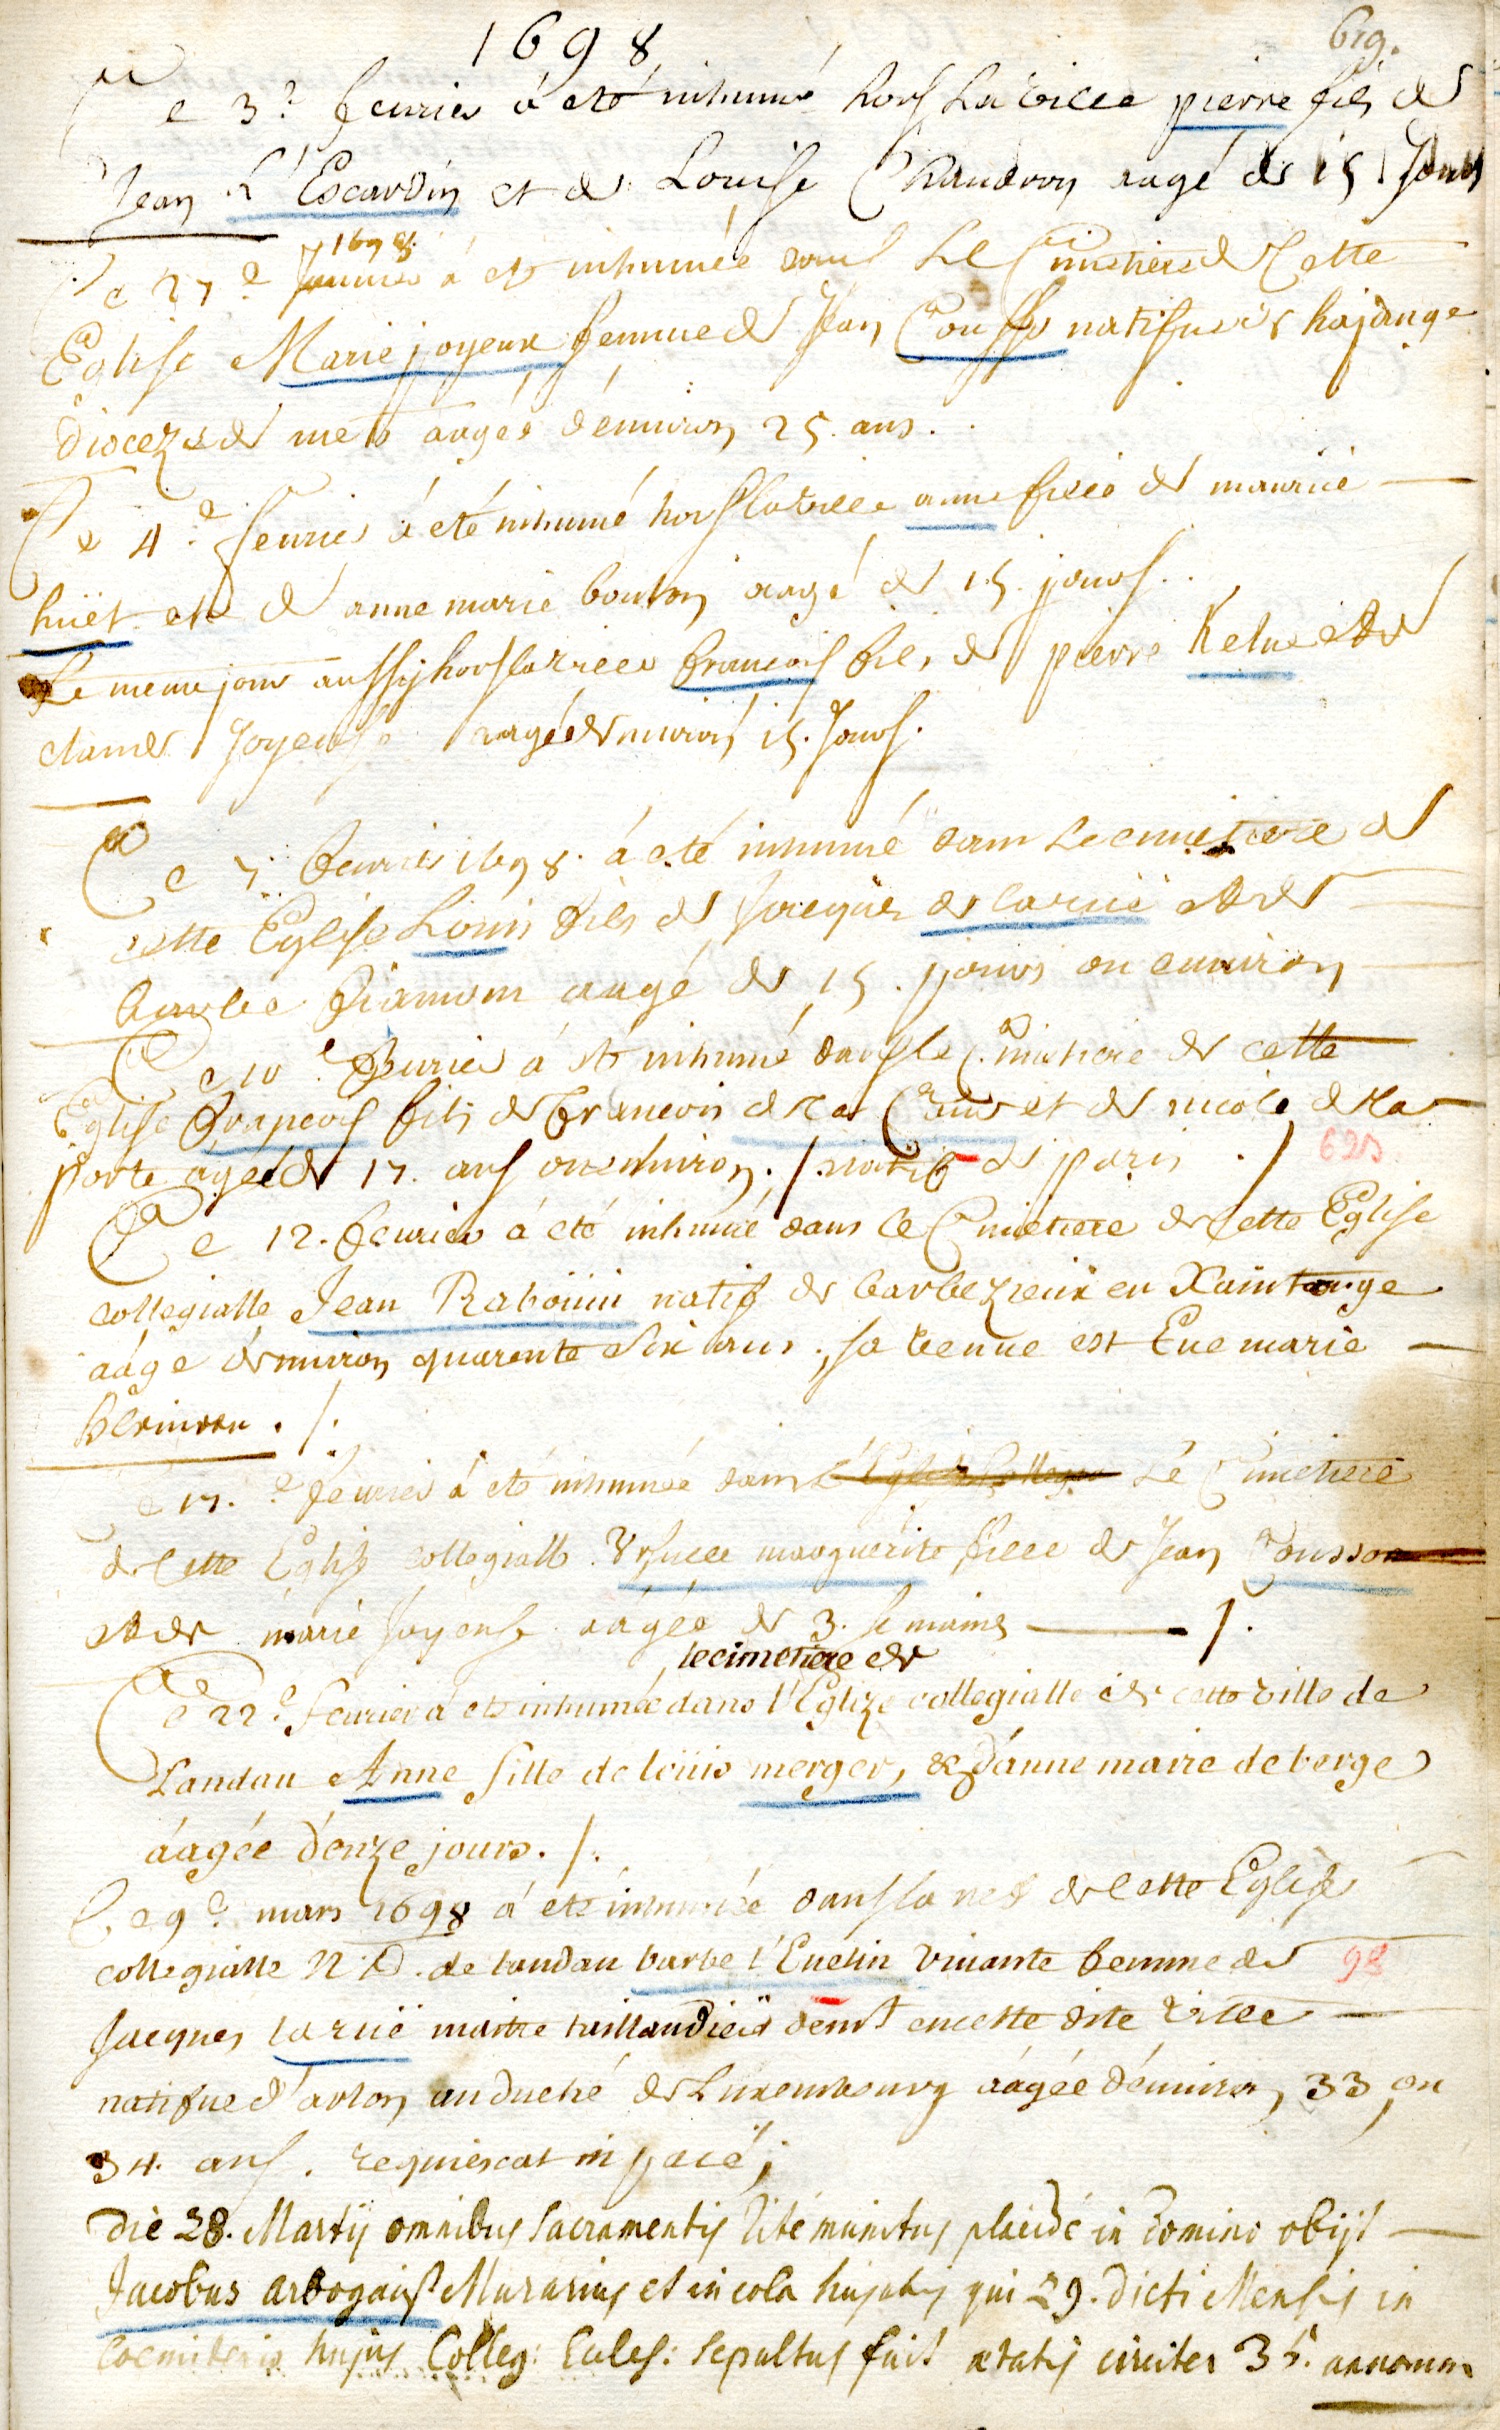 1698
619.
Ce 3.e feurier á eté inhumé hors la ville pierre fils de
Jean L'Escardin et de Louise Chaudron aagé de 15 Jours
1698
Ce 27.e Januier á eté inhumée dans Le Cimetiere de Cette
Eglise Marie joyeux femme de Jean Cousson natifue de hajange
Dioceze de mets aagée d'enuiron 25. ans.
Ce 4.e feurier á eté inhumé hors la ville anne fille de maurice
huët et de anne marie bouton aagé de 15. jours.
Le meme jour aussy hors la ville francois fils de pierre Kelne et de
claude Joyeuse aagée denuiron 15. Jours.
Ce 7. feurier 1698. á eté inhumé dans Le cimetiere de
cette Eglise Louis fils de Jacques de la ruë et de
barbe aagé de 15. jours ou enuiron
Ce 10.e feurier á eté inhumé dans le Cimetiere de cette
Eglise francois fils de francois de la Cour et de nicole de la
porte agée de 17. ans ou enuiron. /. natif de paris ./
625
Ce 12. feurier á eté inhumé dans le Cimetiere de Cette Eglise
collegialle Jean Raboüin natif de barbezieux en Xaintonge
aáge denuiron quarente six ans. sa veuue est Eue marie
. /.
Ce 17.e feurier á eté inhumée dans L'Eglise Collegia Le Cimetiere
de Cette Eglise collegialle Vrsulle marguerite fille de Jean Cousson
et de marie Joyeuse aagée de 3. semaines /.
le cimetiere de
Ce 22.e feurier á eté inhumée dans l'Eglize collegialle de cette ville de
Landau Anne fille de loüis merger, & d'anne marie de berge
áagée d'onze jours. /.
Ce 9.e mars 1698 á eté inhumée dans la nef de Cette Eglise
collegialle N.D. de landau barbe l'Euelin viuante femme de
98
Jacques la ruë maitre taillandier demt en cette dite ville
natifue d'arlon au duché de Luxembourg aágée d'enuiron 33 ou
34. ans. requiescat in pace;
Die 28. Martij omnibus Sacramentis ritè munitus placidè in Domino obijt
Jacobus arbogast Murarius et incola hujatis qui 29. dicti Mensis in
Coemiterio hujus Colleg: Eccles: sepultus fuit ætatis circiter 35. annorum